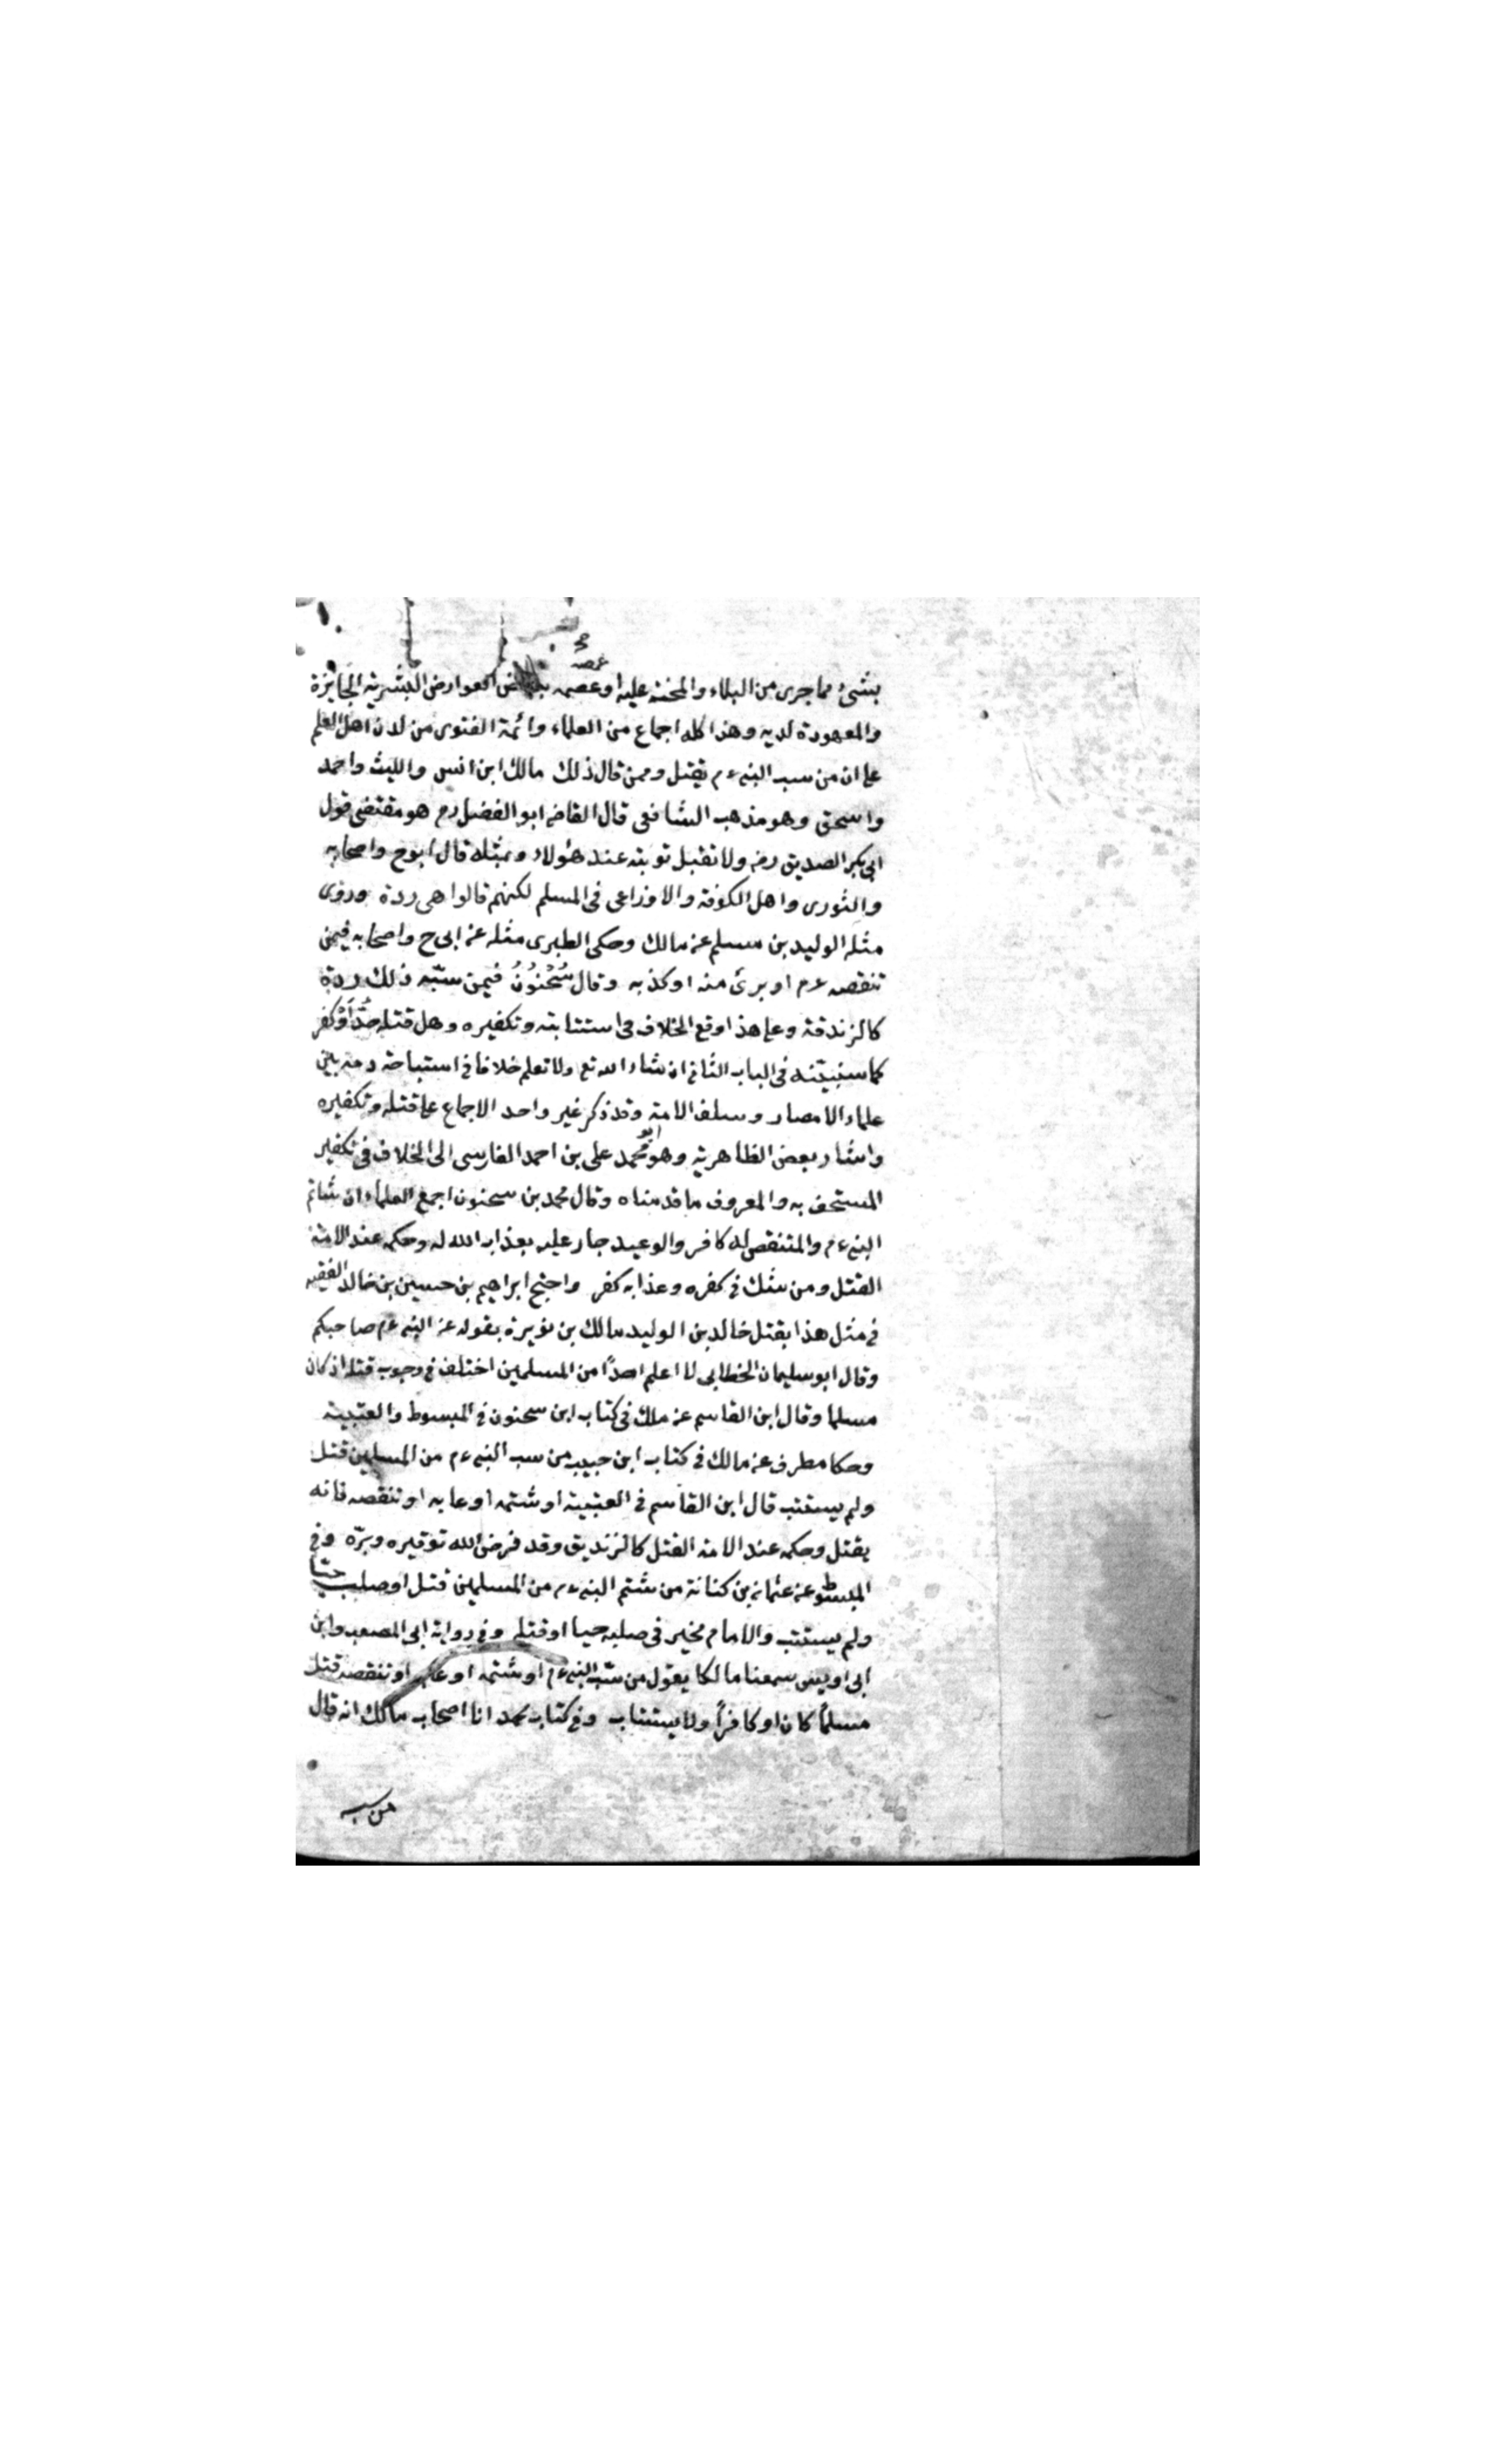 غمصه
بشئ مما جرى من البلاء والمحنة عليه او غصمه ببعض العوارض البشرية الجايزة
والمعهودة لديه وهذا كله اجماع من العلماء وائمة الفتوى من لدن اهل العلم
على ان من سب النبى ءم يقتل وممن قال ذلك مالك ابن انس والليث واحمد
واسحق وهو مذهب الشافعى قال القاضى ابو الفضل رم هو مقتضى قول
ابى بكر الصديق رضه ولا تقبل توبته عند هؤلاء وبمثله قال ابو ح واصحابه
والثورى واهل الكوفة والاوزاعى فى المسلم لكنهم قالوا هى ردة وروى
مثله الوليد بن مسلم عن مالك وحكى الطبرى مثله عن ابى ح واصحابه فيمن
تنقصه عم او برئ منه او كذبه وقال سُحْنُونُ فيمن سبّه ذلك ردة
كالزندقة وعلى هذا وقع الخلاف فى استتابته وتكفيره وهل قتله حدٌّ اَوْ كفر
كما سنبيّنه فى الباب الثانى ان شاء الله تع ولا تعلم خلافا فى استباحة دمه بين
علماء الامصار وسلف الامة وقد ذكر غير واحد الاجماع على قتله وتكفيره
واشار بعض الظاهرية وهو ابو محمد على بن احمد الفارسى الى الخلاف فى تكفير
المستخف به والمعروف ما قدمناه وقال محمد بن سحنون اجمع العلماء ان شاتم
النبى ءم والمتنقص له كافر والوعيد جار عليه بعذاب الله له وحكمه عند الامة
القتل ومن شك فى كفره وعذابه كفر واحتج ابراهيم بن حسين بن خالد الفقيه
فى مثل هذا بقتل خالد بن الوليد مالك بن نويرة بقوله عن النبى عم صاحبكم
وقال ابو سليمان الخطابى لا اعلم احدًا من المسلمين اختلف فى وجوب قتله اذ كان
مسلما وقال ابن القاسم عن ملك فى كتاب ابن سحنون فى المبسوط والعتبية
وحكا مطرف عن مالك فى كتاب ابن حبيب من سب النبى ءم من المسلمين قتل
ولم يستتب قال ابن القاسم فى العتبية او شتمه او عابه او تنقصه فانه
يقتل وحكمه عند الامة القتل كالزنديق وقد فرض الله توقيره وبرّه وفى
المبسوط عن عثمان بن كنانة من شتم النبى ءم من المسلمين قتل او صلب حيّا
ولم يستتب والامام مخير فى صلبه حيا او قتله وفى رواية ابى المصعب وابن
ابى اويس سمعنا مالكا يقول من سبّ النبى ءم او شتمه او عابه او تنقصه قتل
مسلمًا كان او كافرًا ولا يستتاب وفى كتاب محمد انا اصحاب مالك انه قال
من سب